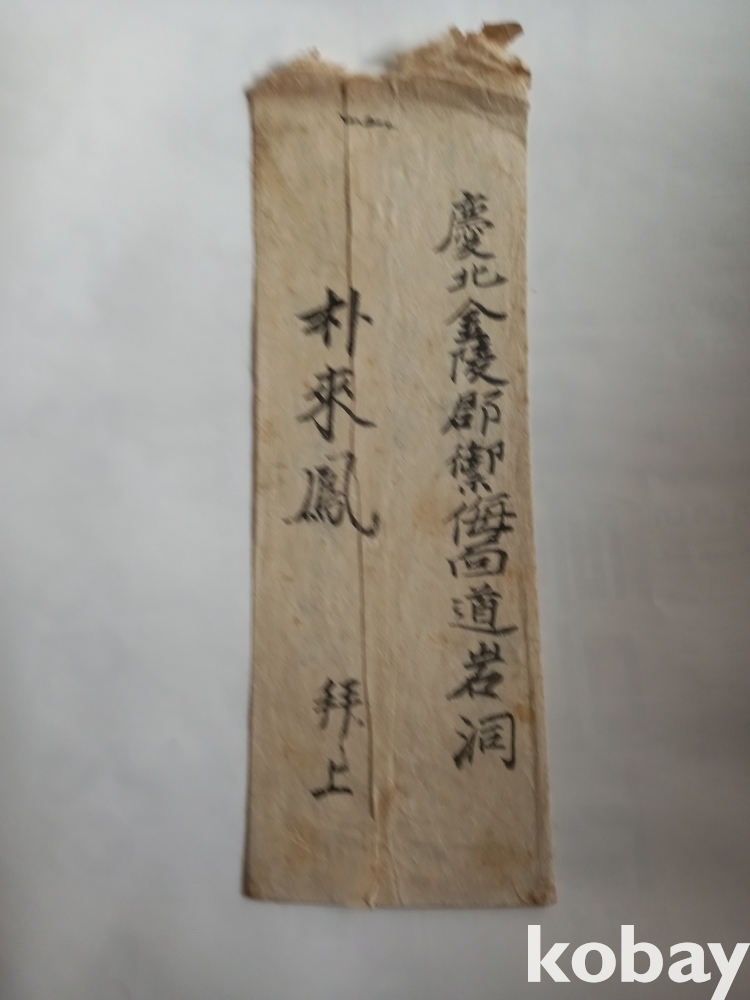 慶北金陵郡禦侮面道岩洞
朴來鳳 拜上
kobay